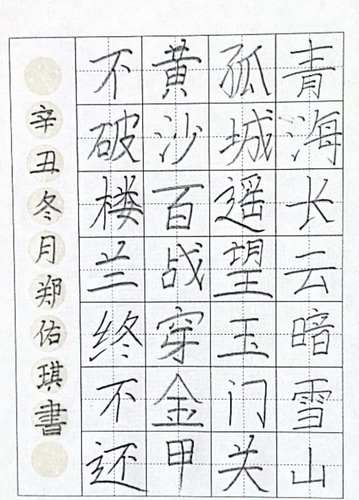 青海长云暗雪山
孤城遥望玉门关
黄沙百战穿金甲
不破楼兰终不还
辛丑冬月郑佑琪書